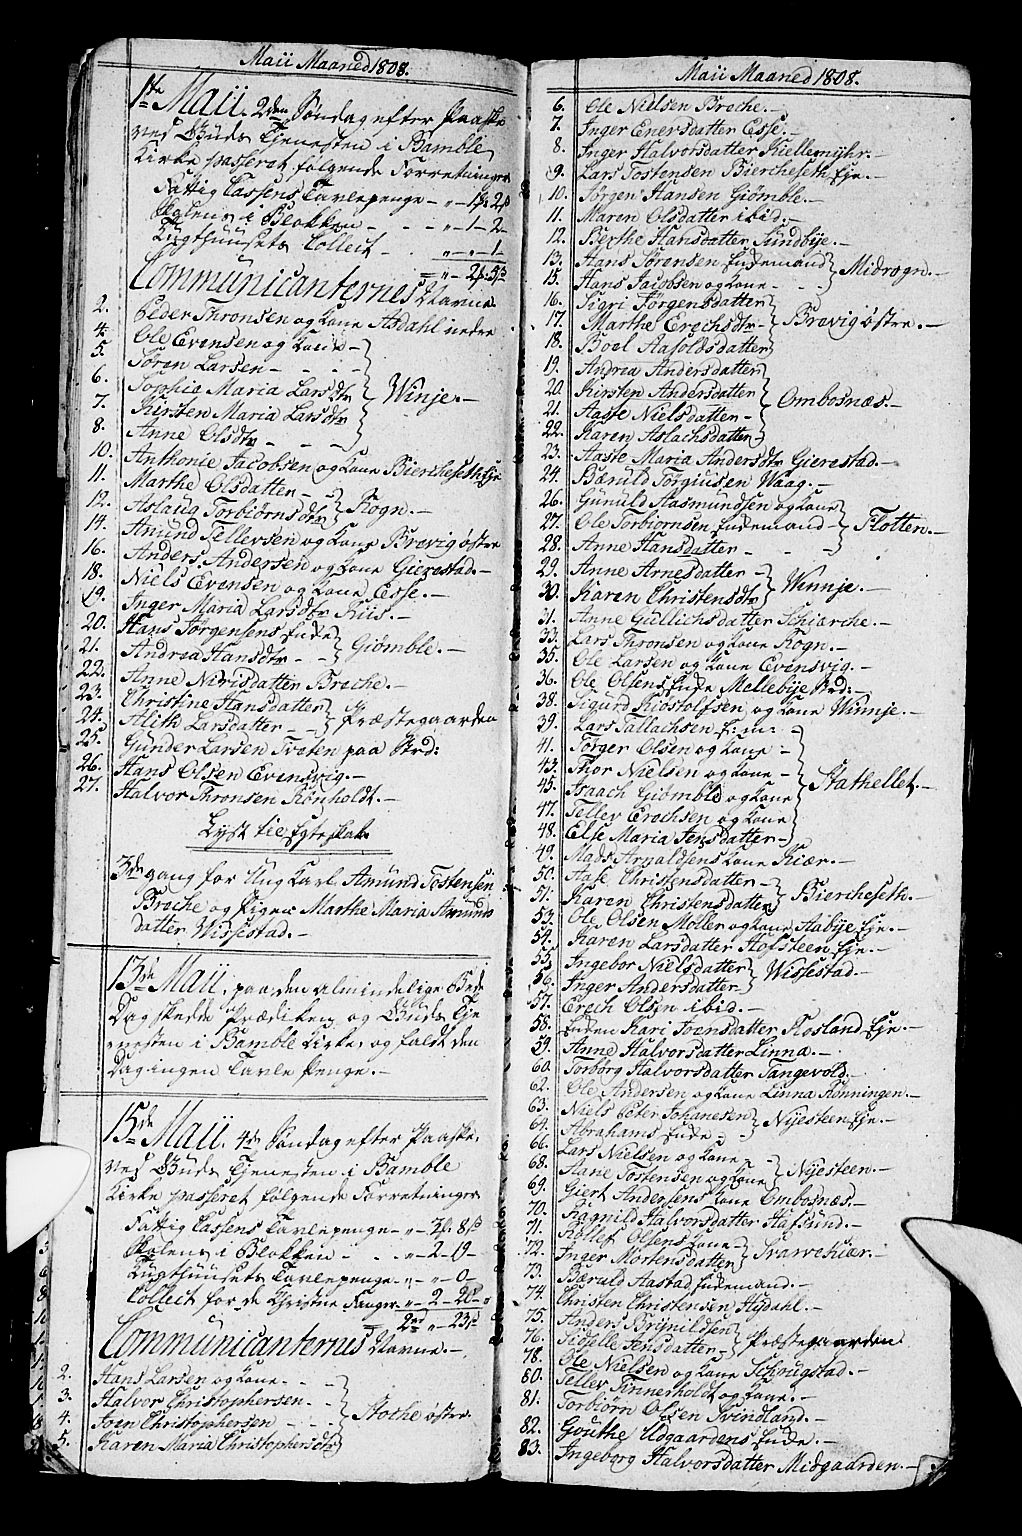 Maii Maaned 1808.
1ste Maii. 2den Søndag efter Paaske
ved Guds Tjenesten i Bamble
Kirke passeret følgende Forretninger
Fattig Cassens Tavlepenge - " 1 2
Skolens i Blokken - - - " 1 - 2 -
Tugthuusets Collect - " " 1 -
= " - 2 5
Communicanternes Navne
2. Peder Thronsen og Kone Asdahl nedre
4. Ole Evensen og Kone -
5. Søren Larsen - - - -
6. Sophia Maria Larsdtr } Winje. -
7. Kirsten Maria Larsdtr
8. Anne Olsdtr - - -
10. Anthonie Jacobsen og Kone Biercheseth Eje
11. Marthe Olsdatter -
12. Aslaug Torbiørnsdtr } Rogn. -
14. Amund Tellevsen og Kone Brevig østre
16. Anders Andersen og Kone Gierestad. -
18. Niels Evensen og Kone Esse. -
19. Inger Maria Larsdtr Riis. -
20. Hans Jørgensens Enke
21. Andrea Hansdtr - - } Giømble. -
22. Anne Nirisdatter Broche. -
23. Christine Hansdatter
24. Alith Larsdatter - - } Præstegaarden
25. Gunder Larsen Tveten paa Hrd:
26. Hans Olsen Evensvig. -
27. Halvor Thronsen Rønholdt. -
Lyst til Egteskab
3die gang for Ung Karl Amund Tostensen
Broche og Pigen Marthe Maria Amunds
datter Wissestad. -
13de Maii, paa den almindelige Bede
Dag skedde Prædiken og Guds Tje
nesten i Bamble Kirke, og faldt den
Dag ingen Tavle Penge. -
15de Maii. 4de Søndag efter Paaske,
ved Guds Tjenesten i Bamble
Kirke passeret følgende Forretninger
Fattig Cassens Tavlepenge - " 3 8
Skolens i Blokken - - " - 2 - 19 -
Tugthuusets Tavlepenge - " - " - 0 -
Collect for de Christne Fanger " - 2 - 20 -
= 2 " - 23
Communicanternes Navne. -
2. Hans Larsen og Kone - - -
3. Halvor Christophersen - -
4. Joen Christophersen - - - } Stothe østre
5. Karen Maria Christophersdtr
Maii Maaned 1808.
6. Ole Nielsen Broche. -
7. Inger Enersdatter Esse. -
8. Inger Halvorsdatter Kiellemyhr. -
9. Lars Tostensen Biercheseth Eje. -
10. Jørgen Hansen Giømble. -
11. Maren Olsdatter ibid. -
12. Berthe Hansdatter Sundbye. -
13. Hans Sørensen Enkemand
15. Hans Jacobsen og Kone - - - } Midrogn. -
16. Sigri Jørgensdatter
17. Marthe Erochsdtr - } Brevig østre. -
18. Boel Aasoldsdatter
19. Andrea Andersdatter
20. Kirsten Andersdatter
21. Aasse Nielsdatter - } Ombosnæs. -
22. Karen Aslachsdatter
23. Aaste Maria Andersdtr Gierestad. -
24. Bæruld Jørgiusen Waag. -
26. Gunuld Aasmundsen og Kone
27. Ole Torbiornsen Enkemand - } Flotten. -
28. Anne Hansdatter - - -
29. Anne Arnesdatter -
30. Karen Christensdtr } Winnje. -
31. Anne Gullichsdatter Schiarche. -
33. Lars Thronsen og Kone Rogn. -
35. Ole Larsen og Kone Evensvig. -
36. Ole Olsens Enke Mellebye Hrd: -
38. Sigurd Kiostolfsen og Kone Winnje. -
39. Lars Tallachsen E: m: -
41. Jørger Olsen og Kone -
43. Thor Nielsen og Kone -
45. Isaach Giømble og Kone } Stathellet. -
47. Tellev Erochsen og Kone
48. Else Maria Jensdatter -
49. Mads Arnaldsens Kone Kiær. -
50. Aase Christensdatter -
51. Karen Christensdatter } Biercheseth. -
53. Ole Olsen Moller og Kone Aabye Eje. -
54. Karen Larsdatter Hofsteen Eje. -
55. Ingebor Nielsdatter
56. Inger Andersdatter } Wissestad. -
57. Eroch Olsen ibid. -
58. Enken Kari Joensdatter Rosland Eje. -
59. Anne Halvorsdatter Linna. -
60. Torborg Halvorsdatter Tangevold. -
62. Ole Andersen og Kone Linna Rønningen. -
63. Niels Peter Johanesen
64. Abrahams Enke - - } Nyesteen Eje. -
66. Lars Nielsen og Kone -
68. Aane Tostensen og Kone } Nyesteen. -
69. Giert Andersens Kone Ombosnæs. -
70. Ragnild Halvorsdatter Hafsund. -
71. Rollef Olsens Kone -
72. Inger Mortensdatter } Svartekiær. -
73. Bæruld Aastad Enkemand. -
74. Christen Christensen Hydahl. -
75. Anders Brynildsen
76. Sidselle Jensdatter - } Præstegaarden
78. Ole Nielsen og Kone Schrugstad. -
80. Tellev Finnerholdt og Kone. -
81. Torbiørn Olsen Svindland. -
82. Gouthe Udgaardens Enke. -
83. Ingeborg Halvorsdatter Midgaarden. -